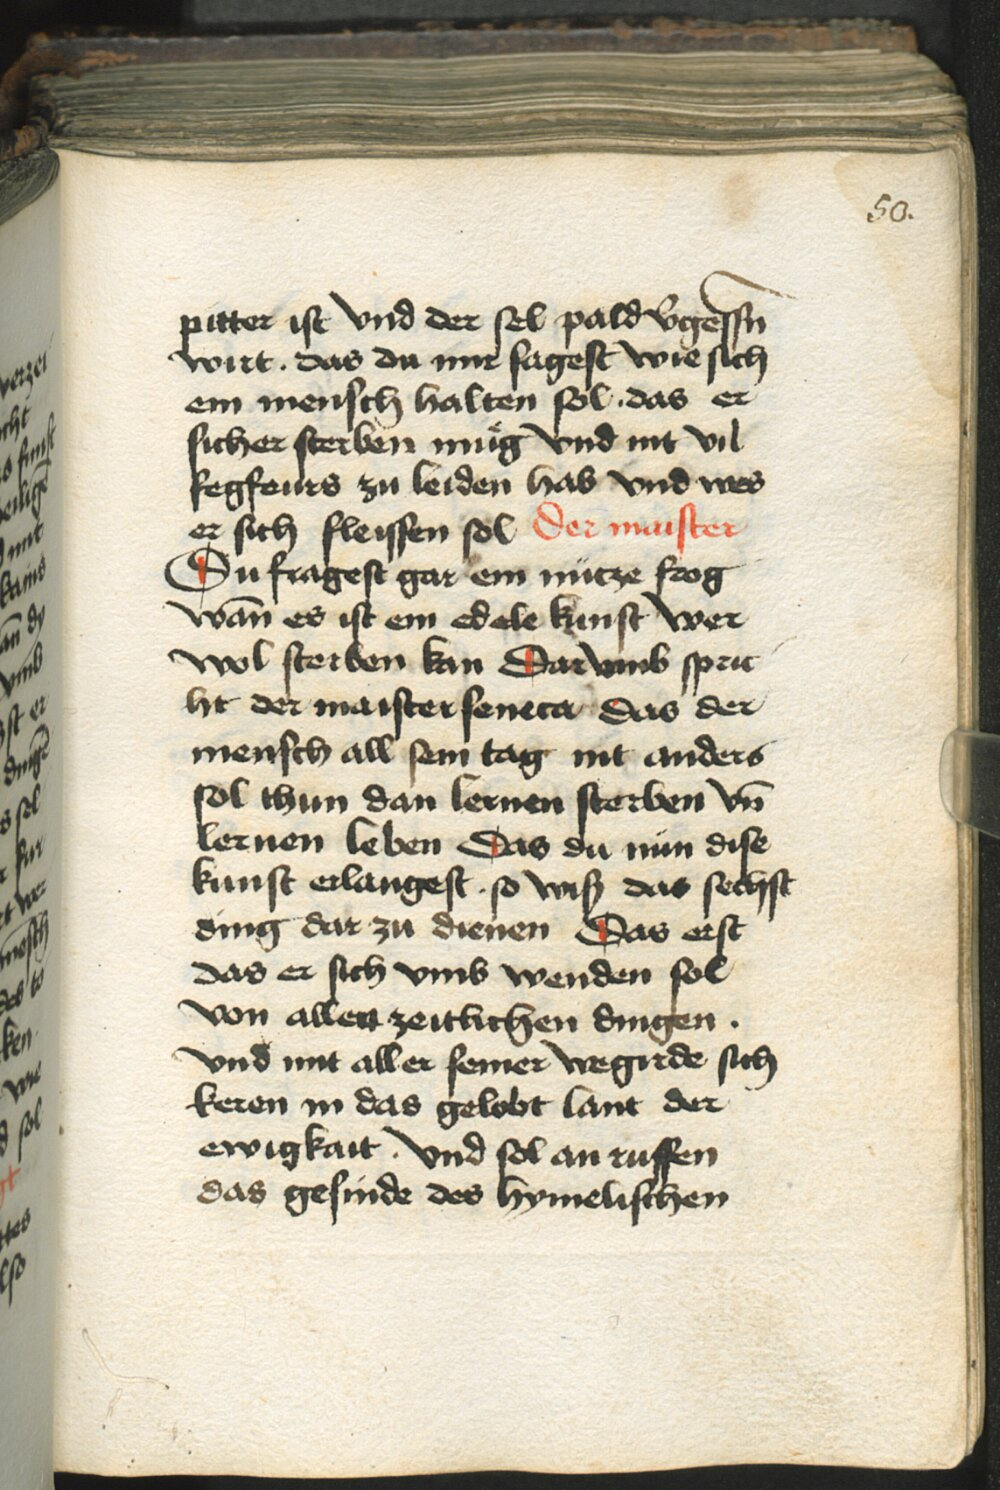 50.
pitter ist vnd der sel pald v̾gessn̄
wirt . das du mir sagest wie sich
ein mensch halten sol . das er
sicher sterben mu̇g vnd nit vil
fegfeurs zu leiden hab vnd wes
er sich fleissen sol Der maister
Du fragest gar ein nu̇tze frog
wan̄ es ist ein edele kunst wer
wol sterben kan Dar vmb spric
ht der maister seneca das der
mensch all sein tag nit anders
sol thun dan lernen sterben vn̄
lernen leben Das du nun dise
kunst erlangest . so wiß das sechst
ding dar zu dienen Das erst
das er sich vmb wenden sol
von allen zeitlichen dingen .
vnd mit aller seiner wegirde sich
keren in das gelobt lant der
ewigkait . vnd sol an ruffen
das gesinde des hymelischen